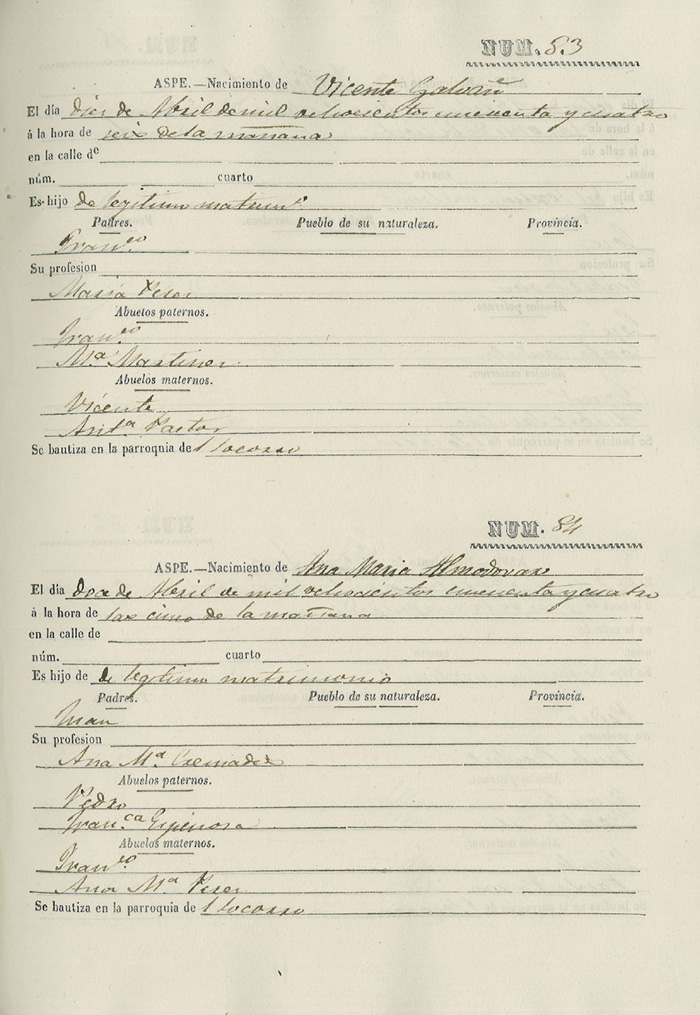 NUM. 83
ASPE.—Nacimiento de Vicente Galvañ
El día diez de Abril de mil ochocientos cincuenta y cuatro
á la hora de seis de la mañana
en la calle de
núm. cuarto
Es hijo de legitimo matrim.º
Padres. Pueblo de su naturaleza. Provincia.
Fran.co
Su profesion
Maria Perez
Abuelos paternos.
Fran.co
M.a Martinez
Abuelos maternos.
Vicente
Ant.a Pastor
Se bautiza en la parroquia del Socorro
NUM. 84
ASPE.—Nacimiento de Ana Maria Almodovar
El día doce de Abril de mil ochocientos cincuenta y cuatro
á la hora de las cinco de la mañana
en la calle de
núm. cuarto
Es hijo de de legitimo matrimonio
Padres. Pueblo de su naturaleza. Provincia.
Juan
Su profesion
Ana M.a Cremades
Abuelos paternos.
Pedro
Fran.ca Espinosa
Abuelos maternos.
Fran.co
Ana M.a Perez
Se bautiza en la parroquia de l Socorro